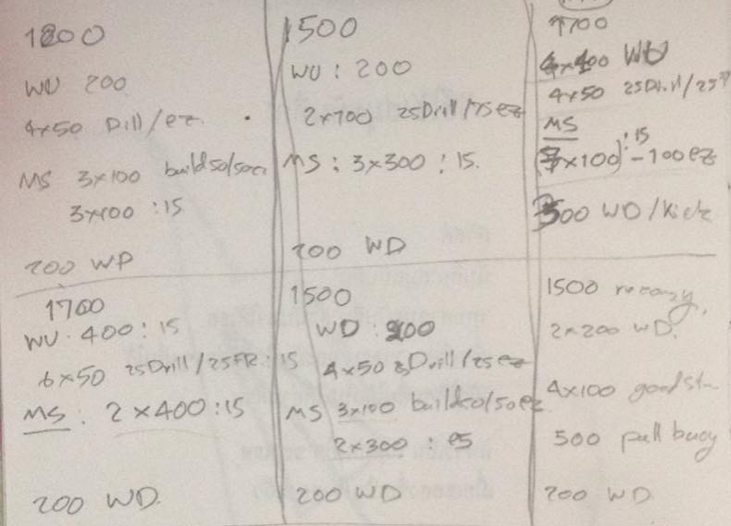 1800
WU 200
4x50 Dill/ez.
MS 3x100 build50/50ez
3x400 :15
200 WD
1500
WU: 200
2x100 25Drill/75ez
MS: 3x300 :15.
200 WD
1700
WU
4x50 25Drill/25F
MS
:15
x100) -100ez
500 WD/Kick
1700
WU. 400:15
6x50 25Drill/25FR:15
MS: 2x400:15
200 WD.
1500
WD: 200
4x50 Drill/25ez
MS 3x100 build50/50ez
2x300 :
200 WD
1500 recovry,
2x200 WD.
4x100 good
500 pull buoy
200 WD